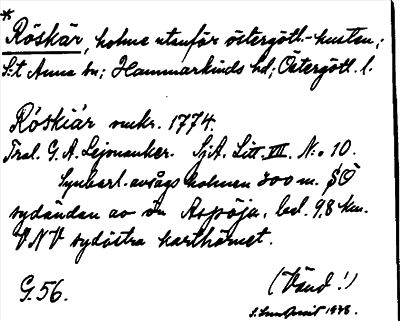 * Röskär, holme utanför östergötl.-kusten;
S:t Anna sn; Hammarkinds hd; Östergötl. l.
Röskiär omkr. 1774.
Tral. G. A. Lejonanker. SjA. Litt. VII. N:o 10.
Synbarl. avsågs holmen 300 m. SÖ
sydändan av ön Aspöja, bel. 9,8 km.
VNV sydöstra karthörnet.
G. 56.
(Vänd!)
1948.